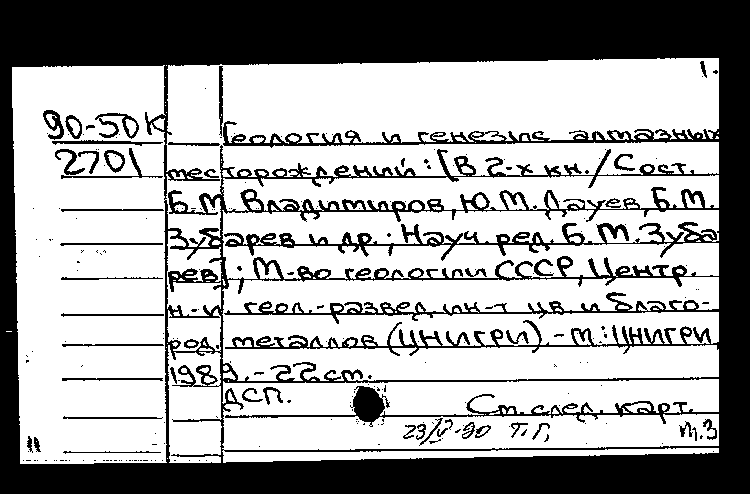 1.
90-50К Геология и генезис алмазных
2701 месторождений: [В 2-х кн./Сост.
Б.М. Владимиров, Ю.М. Дауев, Б.М.
Зубарев и др.; Науч. ред. Б.М. Зуба
рев]; М-во геологии СССР, Центр.
н.-и. геол.-развед. ин-т цв. и благо-
род. металлов (ЦНИГРИ).-М.: ЦНИГРИ,
1989.-22 см.
ДСП.
См. след. карт.
23/V-90 Т.Г. т.3